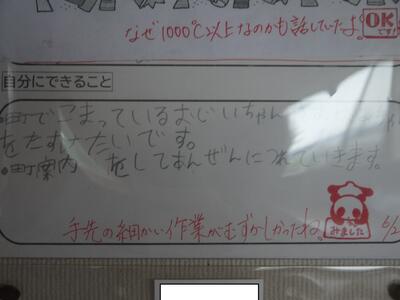 なぜ1000℃以上なのかも話していたよ。
OK
です!
自分にできること
・町でこまっているおじいちゃん
をたすけたいです。
・町案内をしてあんぜんにつれていきます。
手先の細かい作業がむずかしかったね。
みました
6/2